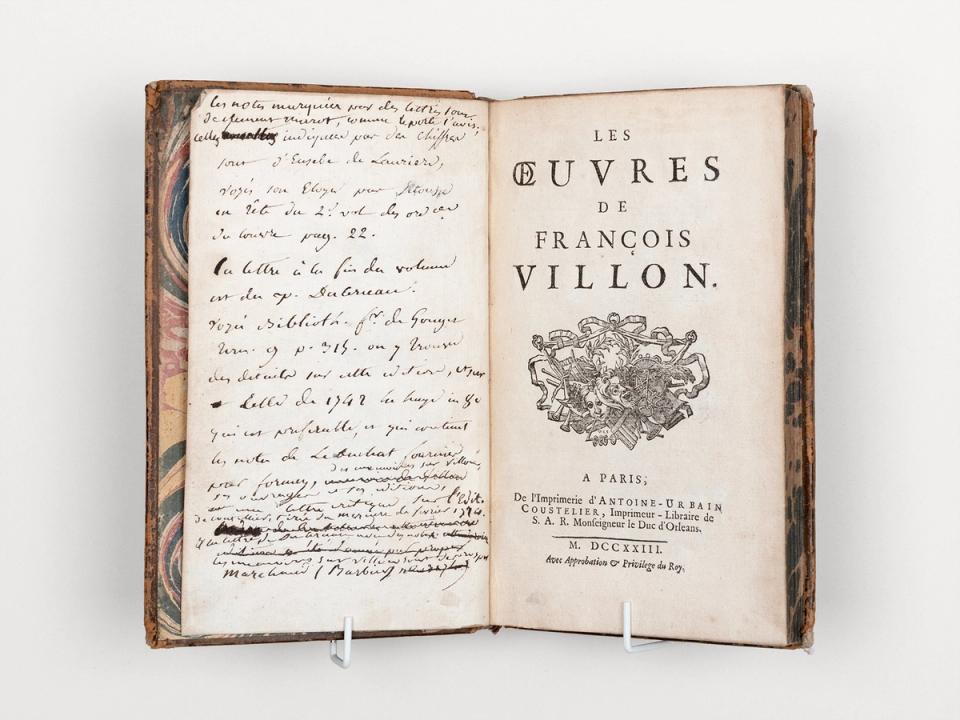 les notes marquées par des lettres sont
de clement marot, comme le porte l'avis;
celles indiquées par des chiffres
sont d'Eusebe de Lauriere,
voyés son Eloge par Secousse
en tête du 2e. vol. des ord
du louvre pag. 22.
la lettre à la fin du volume
est du p. Ducerceau.
voyés Biblioth. fr. de Gouget
tom. 9 p. 315. on y trouve
des details sur cette edition, et sur
celle de 1742 la haye in 8e
qui est preferable, et qui contient
les notes de Le Duchat, 
pour formey, des memoires sur villon,
ses ouvrages et ses editions,
une lettre critique sur l'edit.
de coustelier, tirée du mercure de fevrier 1724.
les memoires sur villon sont de
marchand (Barbier
LES
ŒUVRES
DE
FRANÇOIS
VILLON.
A PARIS,
De l'Imprimerie d'ANTOINE-URBAIN
COUSTELIER, Imprimeur-Libraire de
S. A. R. Monseigneur le Duc d'Orleans.
M. DCCXXIII.
Avec Approbation & Privilege du Roy.